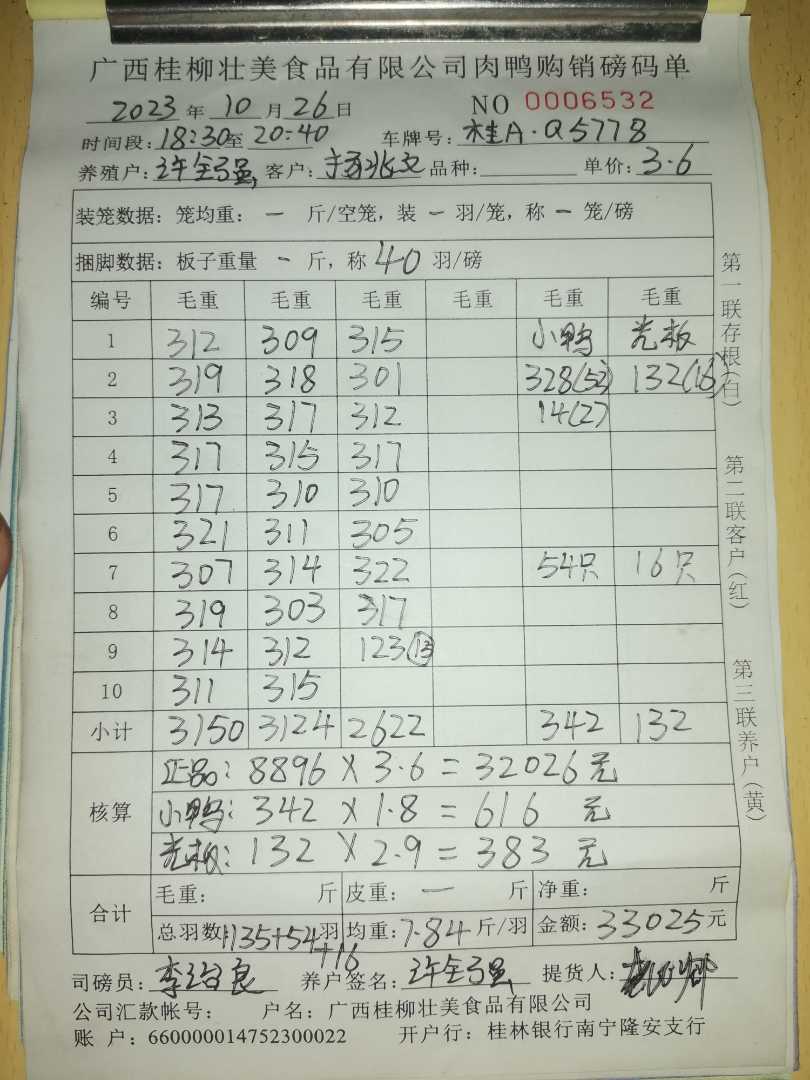 广西桂柳壮美食品有限公司肉鸭购销磅码单
2023 年 10 月 26 日 NO 0006532
时间段: 18:30 至 20:40 车牌号: 桂A·Q5778
养殖户: 许全强, 客户: 品种: 单价: 3.6
装笼数据: 笼均重: 一 斤/空笼, 装 一 羽/笼, 称 一 笼/磅
捆脚数据: 板子重量 一 斤, 称 40 羽/磅
编号 毛重 毛重 毛重 毛重 毛重 毛重
1 312 309 315 小鸭 光板
2 319 318 301 328(52) 132(16)
3 313 317 312 14(2)
4 317 315 317
5 317 310 310
6 321 311 305
7 307 314 322 54只 16只
8 319 303 317
9 314 312 123(13)
10 311 315
小计 3150 3124 2622 342 132
核算
正品: 8896 X 3.6 = 32026 元
小鸭: 342 X 1.8 = 616 元
光板: 132 X 2.9 = 383 元
合计
毛重: 斤 皮重: 一 斤 净重: 斤
总羽数 1135+54+16 羽 均重: 7.84 斤/羽 金额: 33025 元
司磅员: 养户签名: 许全强 提货人:
公司汇款帐号: 户名: 广西桂柳壮美食品有限公司
账 户: 660000014752300022 开户行: 桂林银行南宁隆安支行
第一联存根(白)
第二联客户(红)
第三联养户(黄)